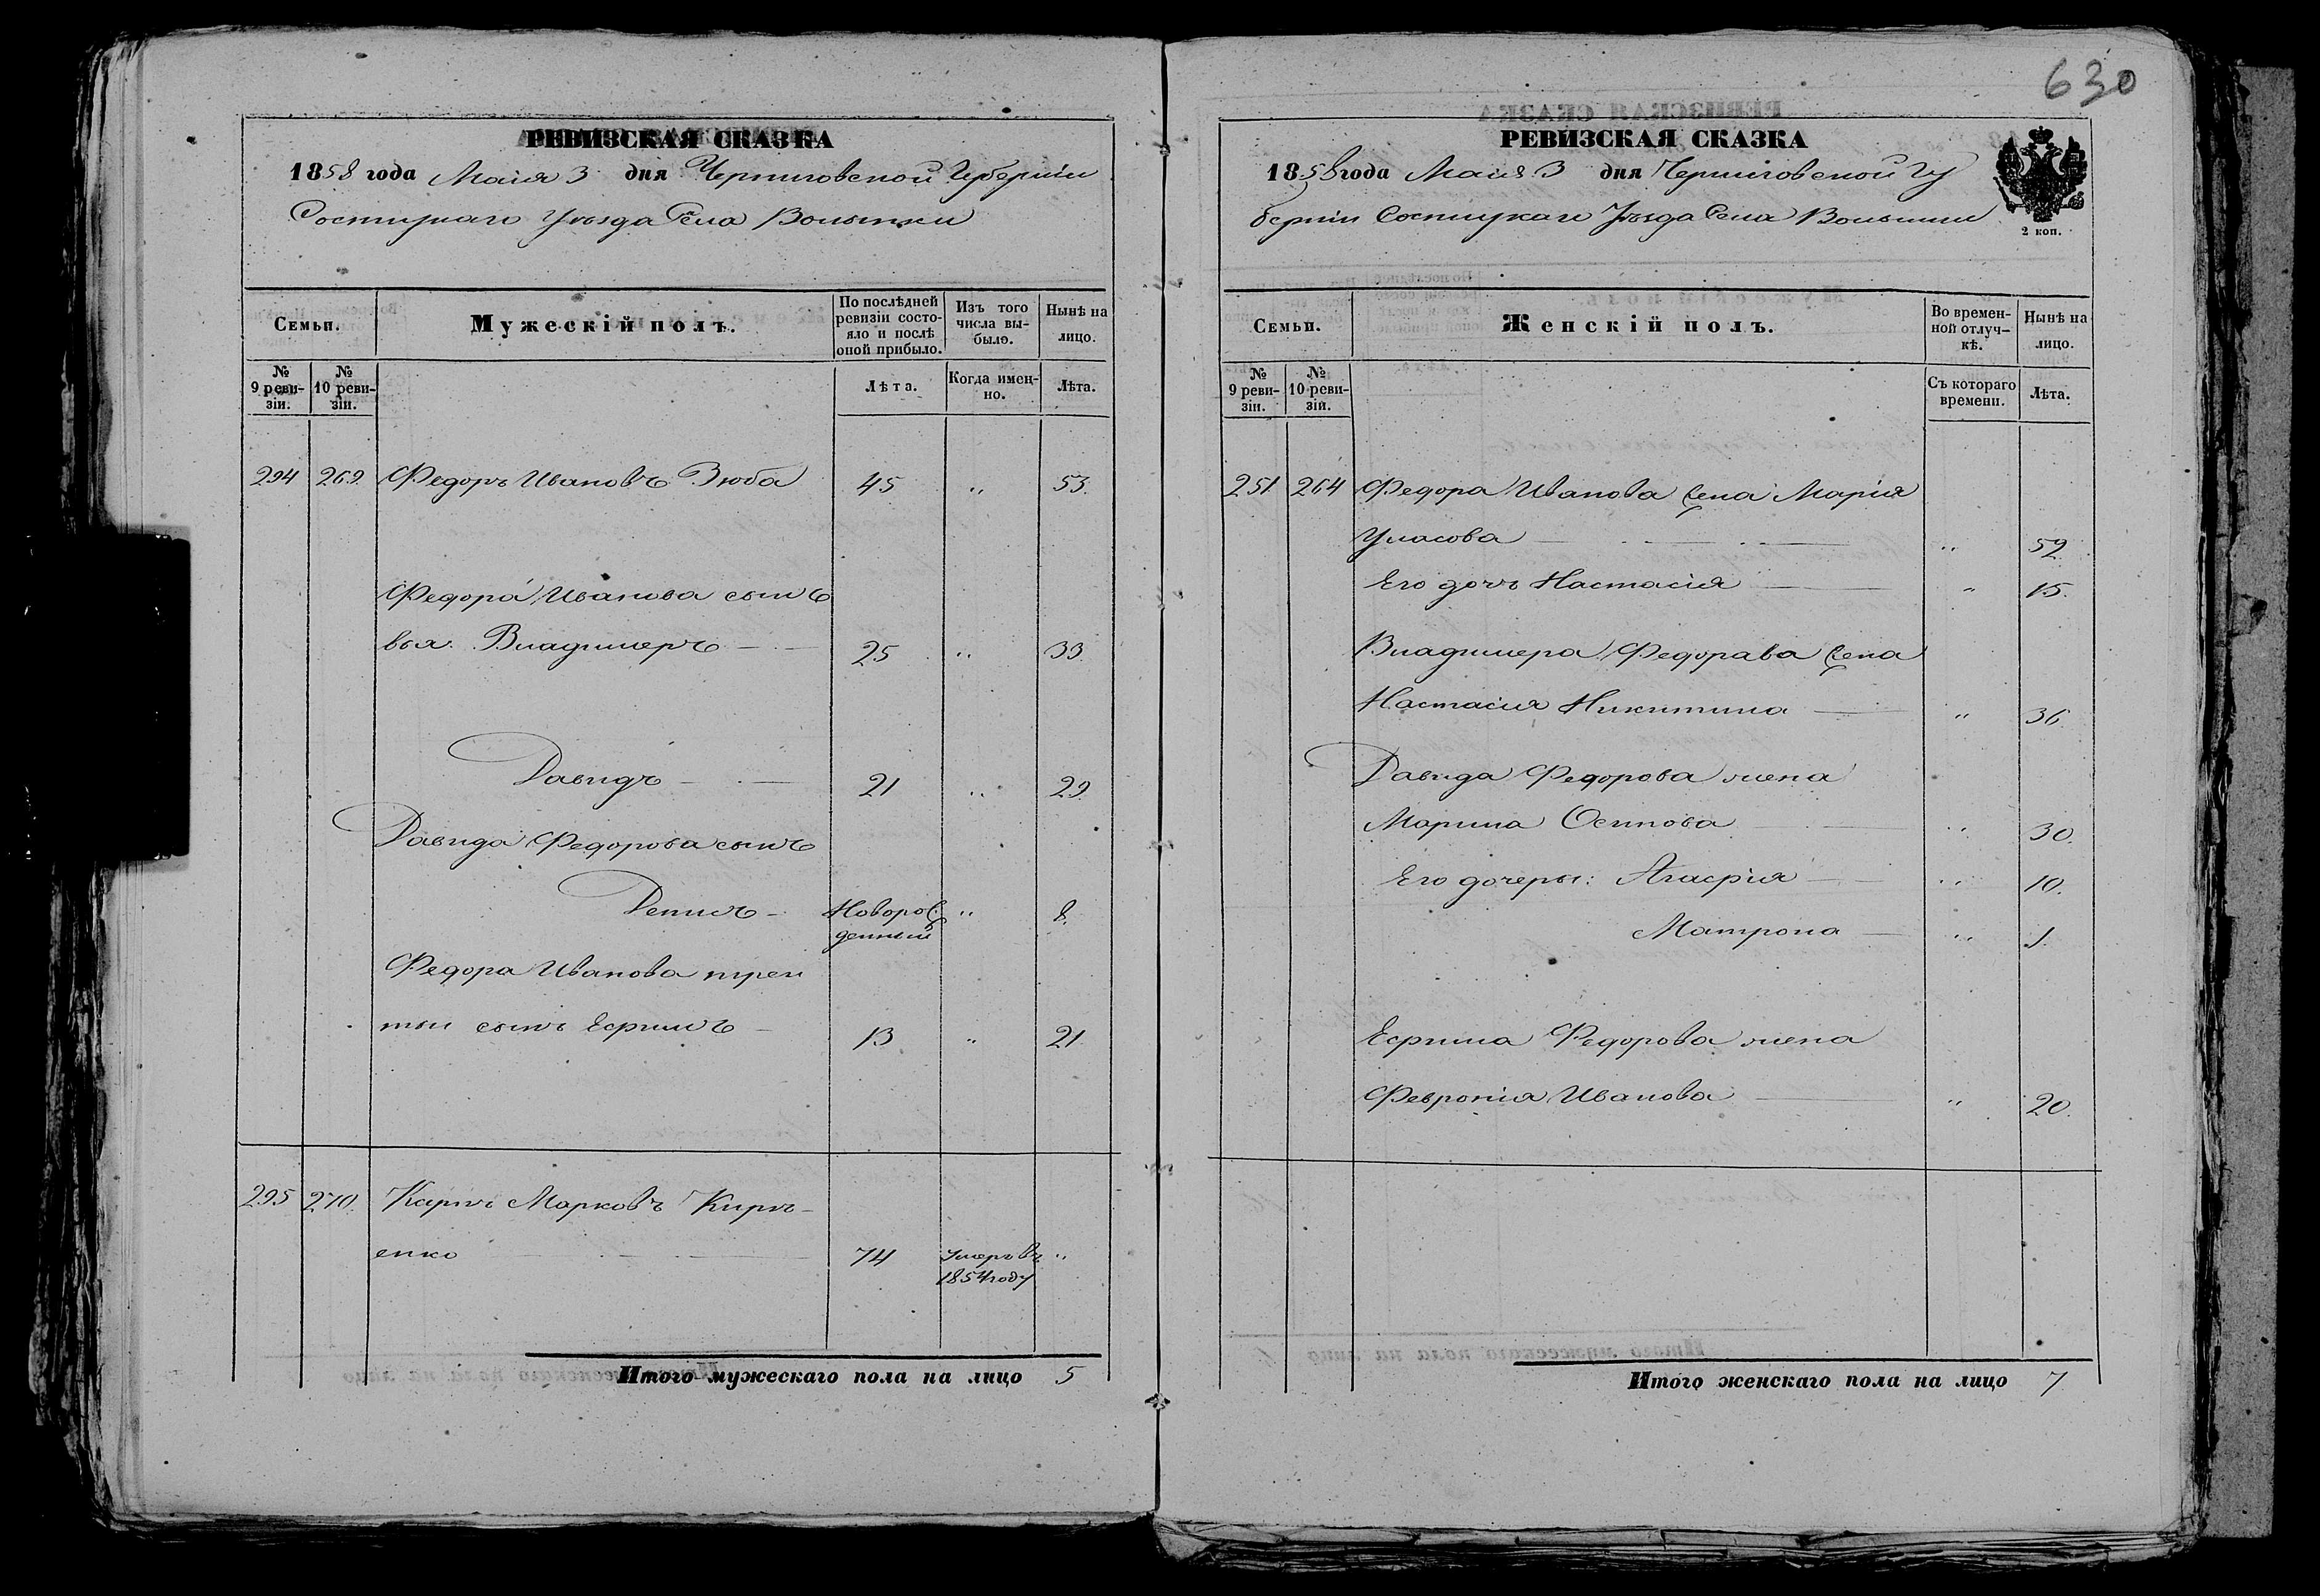 630
РЕВИЗСКАЯ СКАЗКА
1858 года Маія 3 дня Черниговской Губерніи
Состицкаго Уѣзда Села Волынки
Семьи.
Мужескій полъ.
По послѣдней ревизіи состояло и послѣ оной прибыло.
Изъ того числа выбыло.
Нынѣ на лицо.
№ 9 ревизіи.
№ 10 ревизіи.
Лѣта.
Когда именно.
Лѣта.
294 269. Федоръ Ивановъ Зюба 45 " 53.
Федора Иванова сыно
вья. Владимеръ 25 " 33.
Давидъ 21 " 29.
Давида Федорова сынъ
Денисъ Новорож " 8.
денный
Федора Иванова трей
тый сынъ Ефимъ 13 " 21.
295 270. Карпъ Марковъ Кирі-
енко 74 умеръ въ "
1854 году
Итого мужескаго пола на лицо 5
РЕВИЗСКАЯ СКАЗКА
1858 года Маія 3 дня Черниговской Гу
берніи Состицкаго Уѣзда Села Волынки
2 коп.
Семьи.
Женскій полъ.
Во временной отлучкѣ.
Нынѣ на лицо.
№ 9 ревизіи.
№ 10 ревизій.
Съ котораго времени.
Лѣта.
251. 264 Федора Иванова жена Марія
Уласова " 52.
Его дочь Настасія " 15.
Владимера Федорава жена
Настасія Никитина " 36
Давида Федорова жена
Марина Осипова " 30.
Его дочеры: Агафія " 10.
Матрона " 1.
Ефима Федорова жена
Февронія Иванова " 20.
Итого женскаго пола на лицо 7